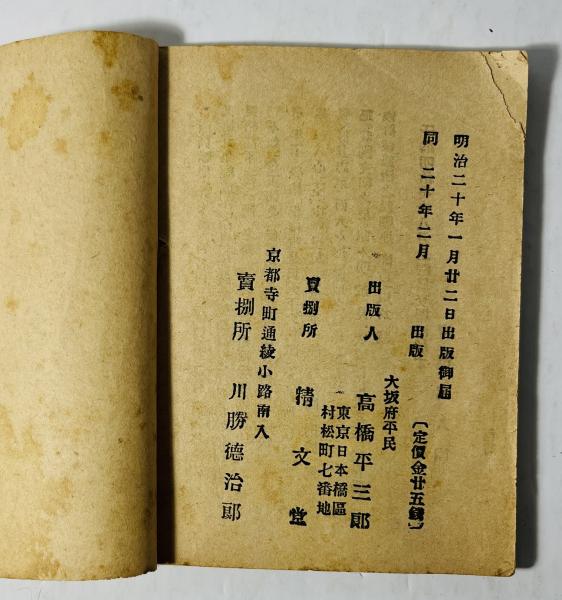 明治二十年一月廿二日出版御届
同　二十年二月　出版　〔定價金廿五錢〕
大坂府平民
出版人　高橋平三郎
東京日本橋區
村松町七番地
賣捌所　精文堂
京都寺町通綾小路南入
賣捌所　川勝德治郎